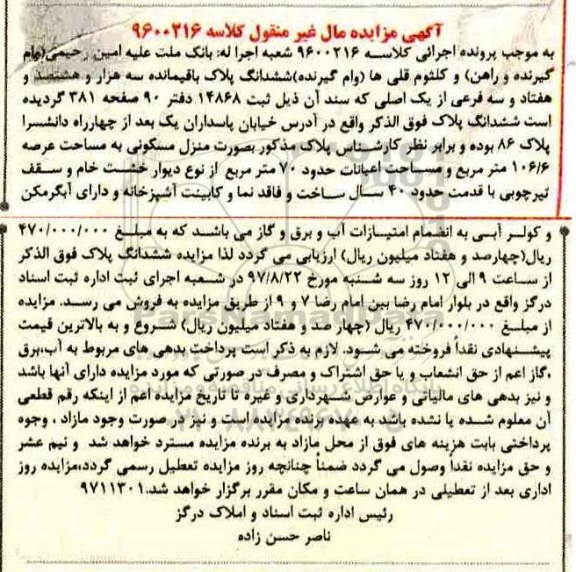 آگهی مزایده مال غیر منقول کلاسه ۹۶۰۰۲۱۶
به موجب پرونده اجرائی کلاسه ۹۶۰۰۲۱۶ شعبه اجرا له: بانک ملت علیه امین رحیمی(وام
گیرنده و راهن) و کلثوم قلی ها (وام گیرنده)ششدانگ پلاک باقیمانده سه هزار و هشتصد و
هفتاد و سه فرعی از یک اصلی که سند آن ذیل ثبت ۱۴۸۶۸ دفتر ۹۰ صفحه ۳۸۱ گردیده
است ششدانگ پلاک فوق الذکر واقع در آدرس خیابان پاسداران یک بعد از چهارراه دانشسرا
پلاک ۸۶ بوده و برابر نظر کارشناس پلاک مذکور بصورت منزل مسکونی به مساحت عرصه
۱۰۶/۶ متر مربع و مساحت اعیانات حدود ۷۰ متر مربع از نوع دیوار خشت خام و سقف
تیرچوبی با قدمت حدود ۴۰ سال ساخت و فاقد نما و کابینت آشپزخانه و دارای آبگرمکن
و کولر آبی به انضمام امتیازات آب و برق و گاز می باشد که به مبلغ ۴۷۰/۰۰۰/۰۰۰
ریال(چهارصد و هفتاد میلیون ریال) ارزیابی می گردد لذا مزایده ششدانگ پلاک فوق الذکر
از ساعت ۹ الی ۱۲ روز سه شنبه مورخ ۹۷/۸/۲۲ در شعبه اجرای ثبت اداره ثبت اسناد
درگز واقع در بلوار امام رضا بین امام رضا ۷ و ۹ از طریق مزایده به فروش می رسد. مزایده
از مبلغ ۴۷۰/۰۰۰/۰۰۰ ریال (چهار صد و هفتاد میلیون ریال) شروع و به بالاترین قیمت
پیشنهادی نقداً فروخته می شود. لازم به ذکر است پرداخت بدهی های مربوط به آب،برق
،گاز اعم از حق انشعاب و یا حق اشتراک و مصرف در صورتی که مورد مزایده دارای آنها باشد
و نیز بدهی های مالیاتی و عوارض شهرداری و غیره تا تاریخ مزایده اعم از اینکه رقم قطعی
آن معلوم شده یا نشده باشد به عهده برنده مزایده است و نیز در صورت وجود مازاد ، وجوه
پرداختی بابت هزینه های فوق از محل مازاد به برنده مزایده مسترد خواهد شد و نیم عشر
و حق مزایده نقداً وصول می گردد ضمناً چنانچه روز مزایده تعطیل رسمی گردد،مزایده روز
اداری بعد از تعطیلی در همان ساعت و مکان مقرر برگزار خواهد شد.۹۷۱۱۳۰۱
رئیس اداره ثبت اسناد و املاک درگز
ناصر حسن زاده